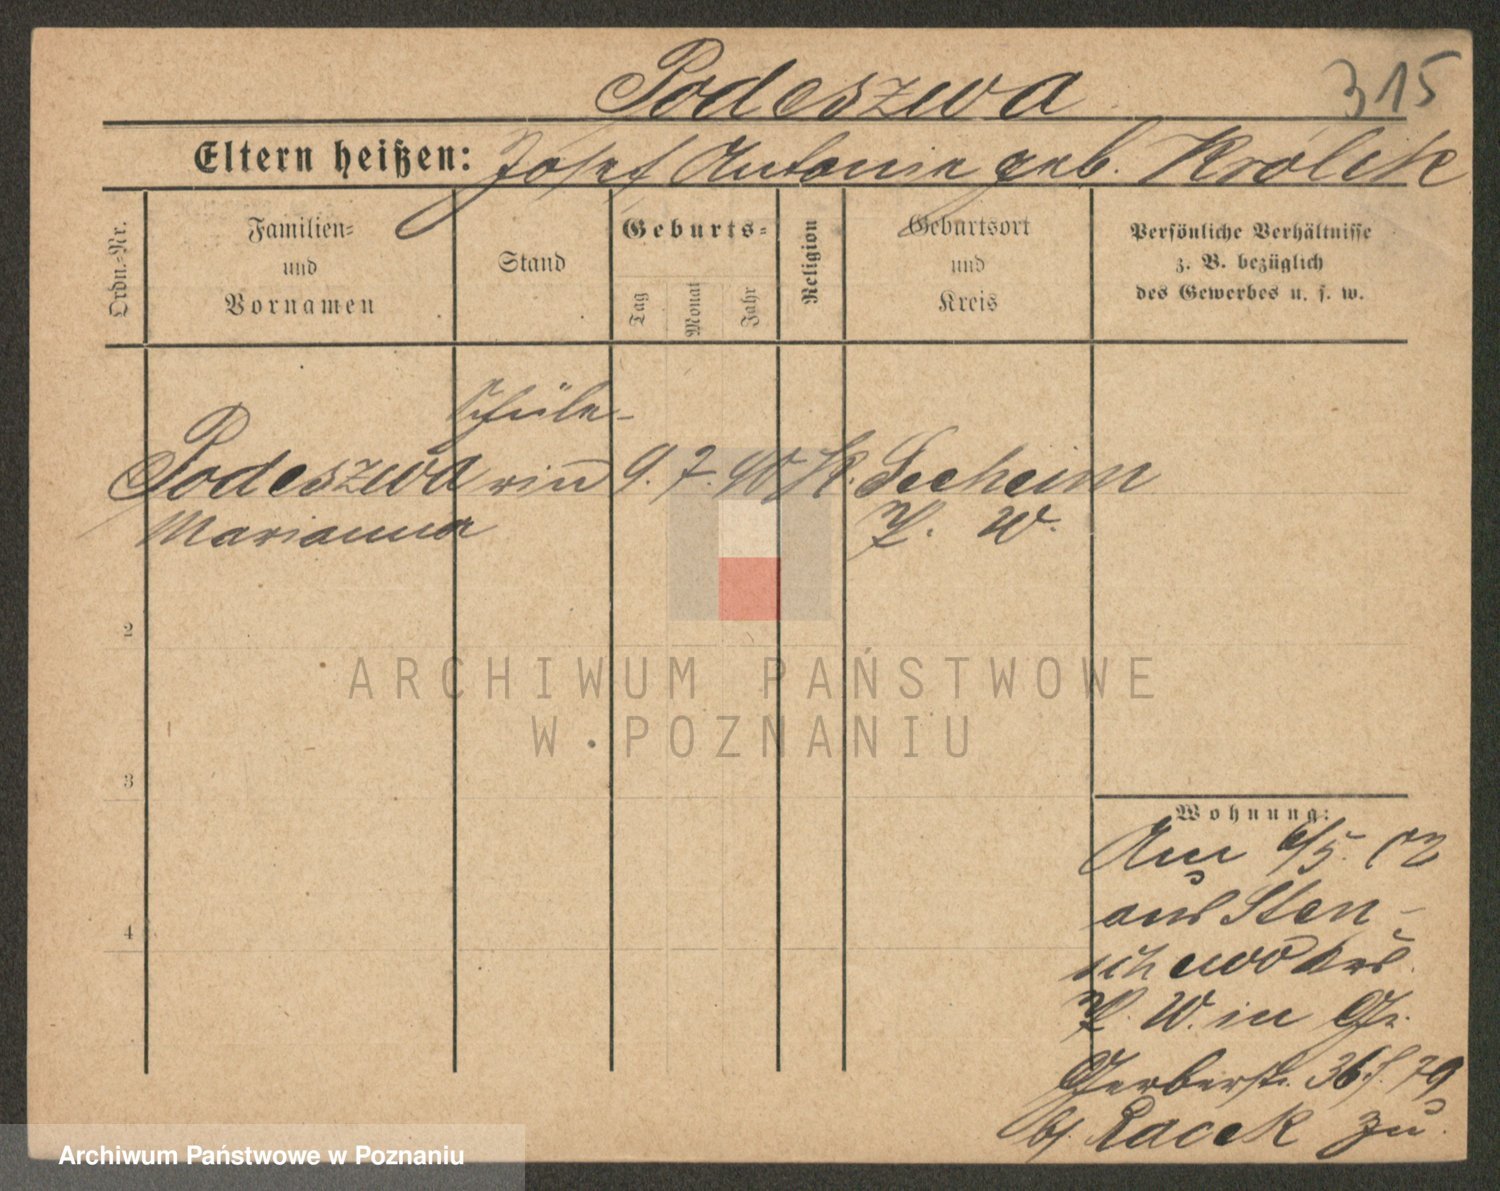 Podeszwa
315
Eltern heißen: Josef Antonie geb. Krolik
Ordn.-Nr.
Familien-
und
Vornamen
Stand
Geburts-
Tag
Monat
Jahr
Religion
Geburtsort
und
Kreis
Persönliche Verhältnisse
z. B. bezüglich
des Gewerbes u. s. w.
Schüle-
Podeszwa rin 9. 7. 90 K. Seeheim
Marianna P. W.
2
3
4
Wohnung:
Am 6/5. 02
aus Sten-
schewo Krs.
P. W. in Gr.
Gerberstr. 36
b/ Lacek zu
ARCHIWUM PAŃSTWOWE
W POZNANIU
Archiwum Państwowe w Poznaniu